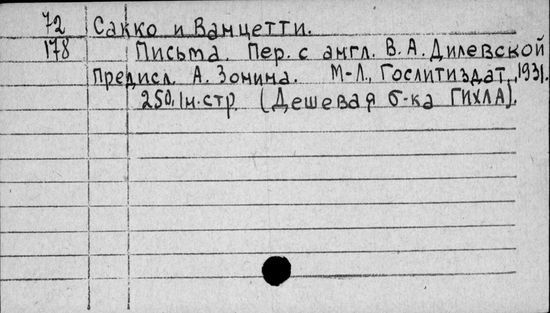 72 Сакко и Ванцетти.
178 Письма. Пер. с англ. В. А. Дилевской
Предисл. А. Зонина. М-Л., Гослитиздат, 1931.
250, 1н.стр (Дешевая б-ка ГИХЛА).